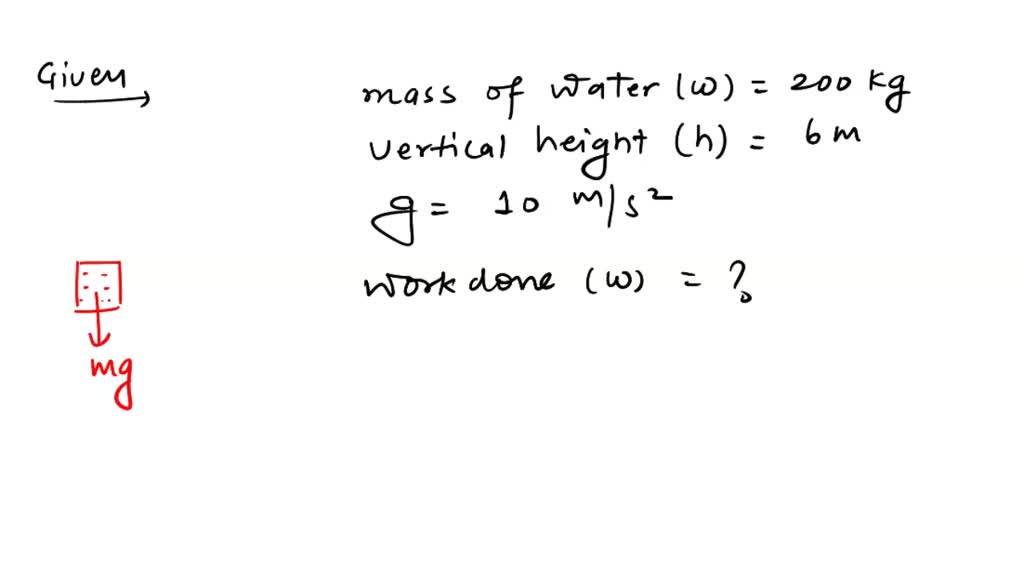 Given
mass of water (w) = 200 kg
vertical height (h) = 6 m
g = 10 m/s²
work done (w) = ?
mg